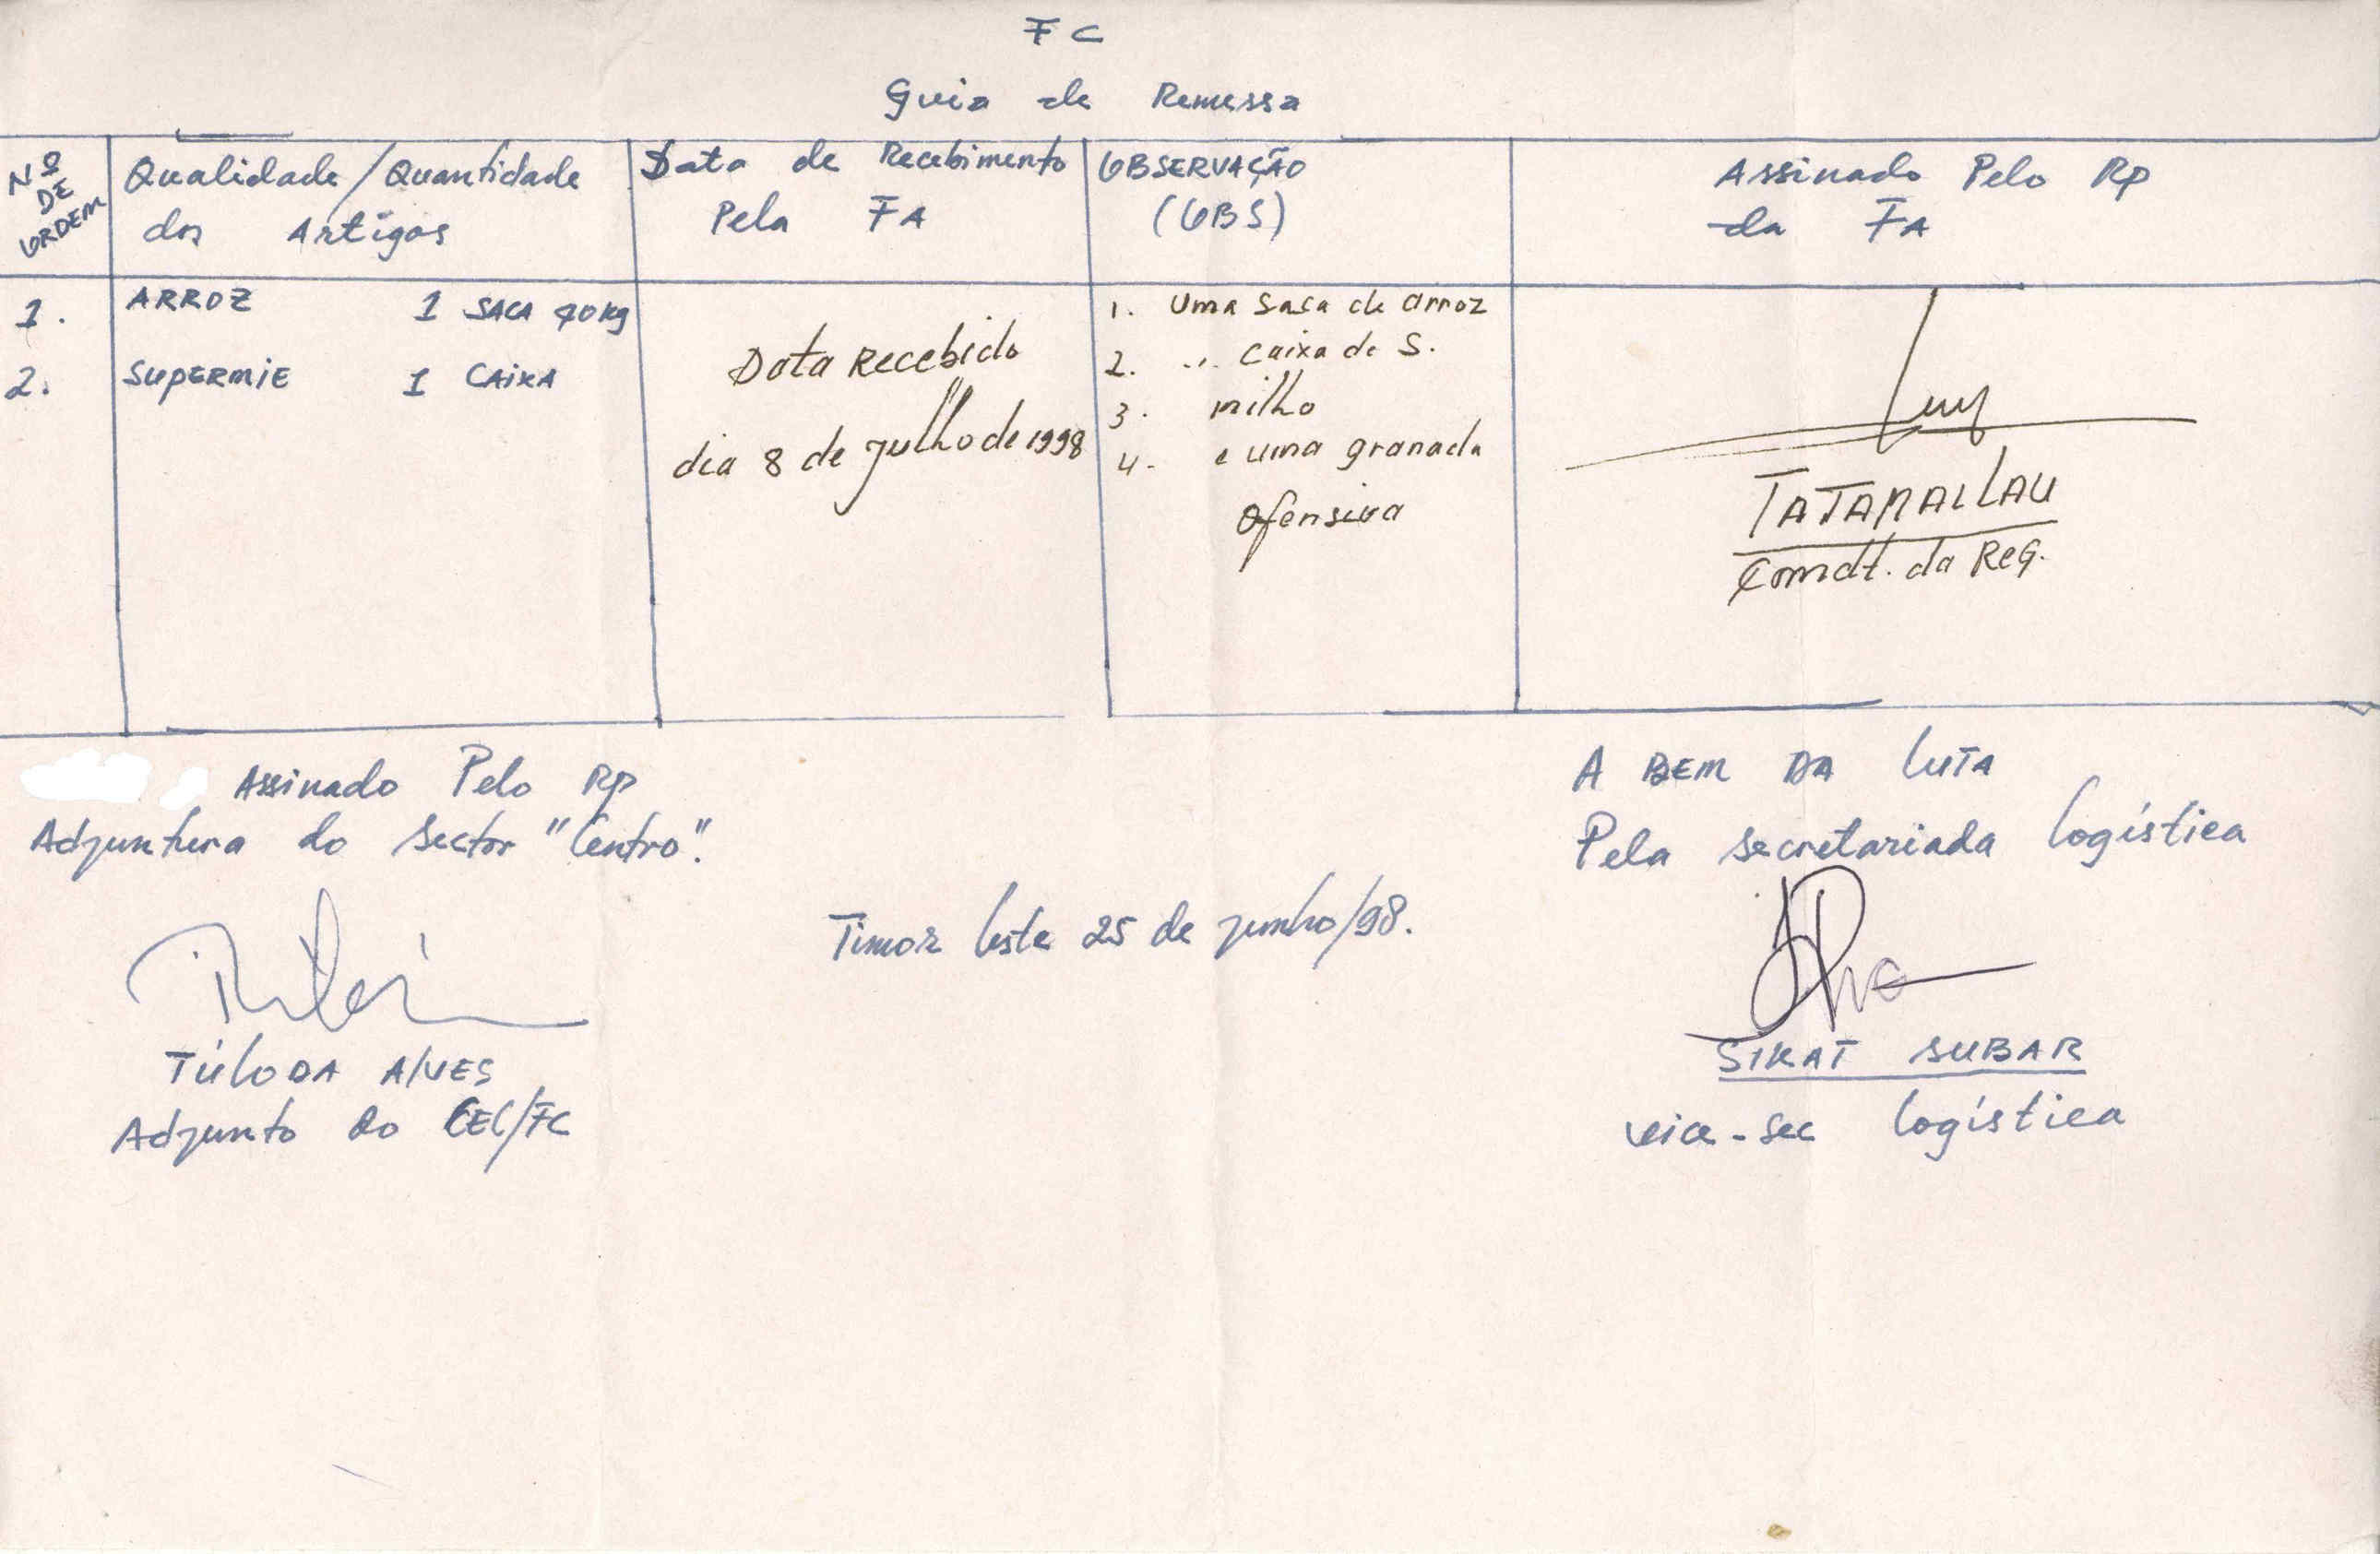 FC
Guia de Remessa
Nº DE ORDEM
Qualidade/Quantidade
dos Artigos
Data de Recebimento
Pela FA
OBSERVAÇÃO
(OBS)
Assinado Pelo Rp
da FA
1. ARROZ 1 SACA 40kg
2. SUPERMIE 1 CAIXA
Data Recebido
dia 8 de Julho de 1998
1. Uma Saca de arroz
2. ... Caixa de S.
3. milho
4. e uma granada
ofensiva
TATAMAILAU
Comdt. da Reg.
Assinado Pelo Rp
Adjuntura do Sector "Centro".
TúloDA AlVES
Adjunto do CEL/FC
Timor leste 25 de junho/98.
A BEM DA LUTA
Pela secretariada logística
SIKAT SUBAR
vice-sec logística